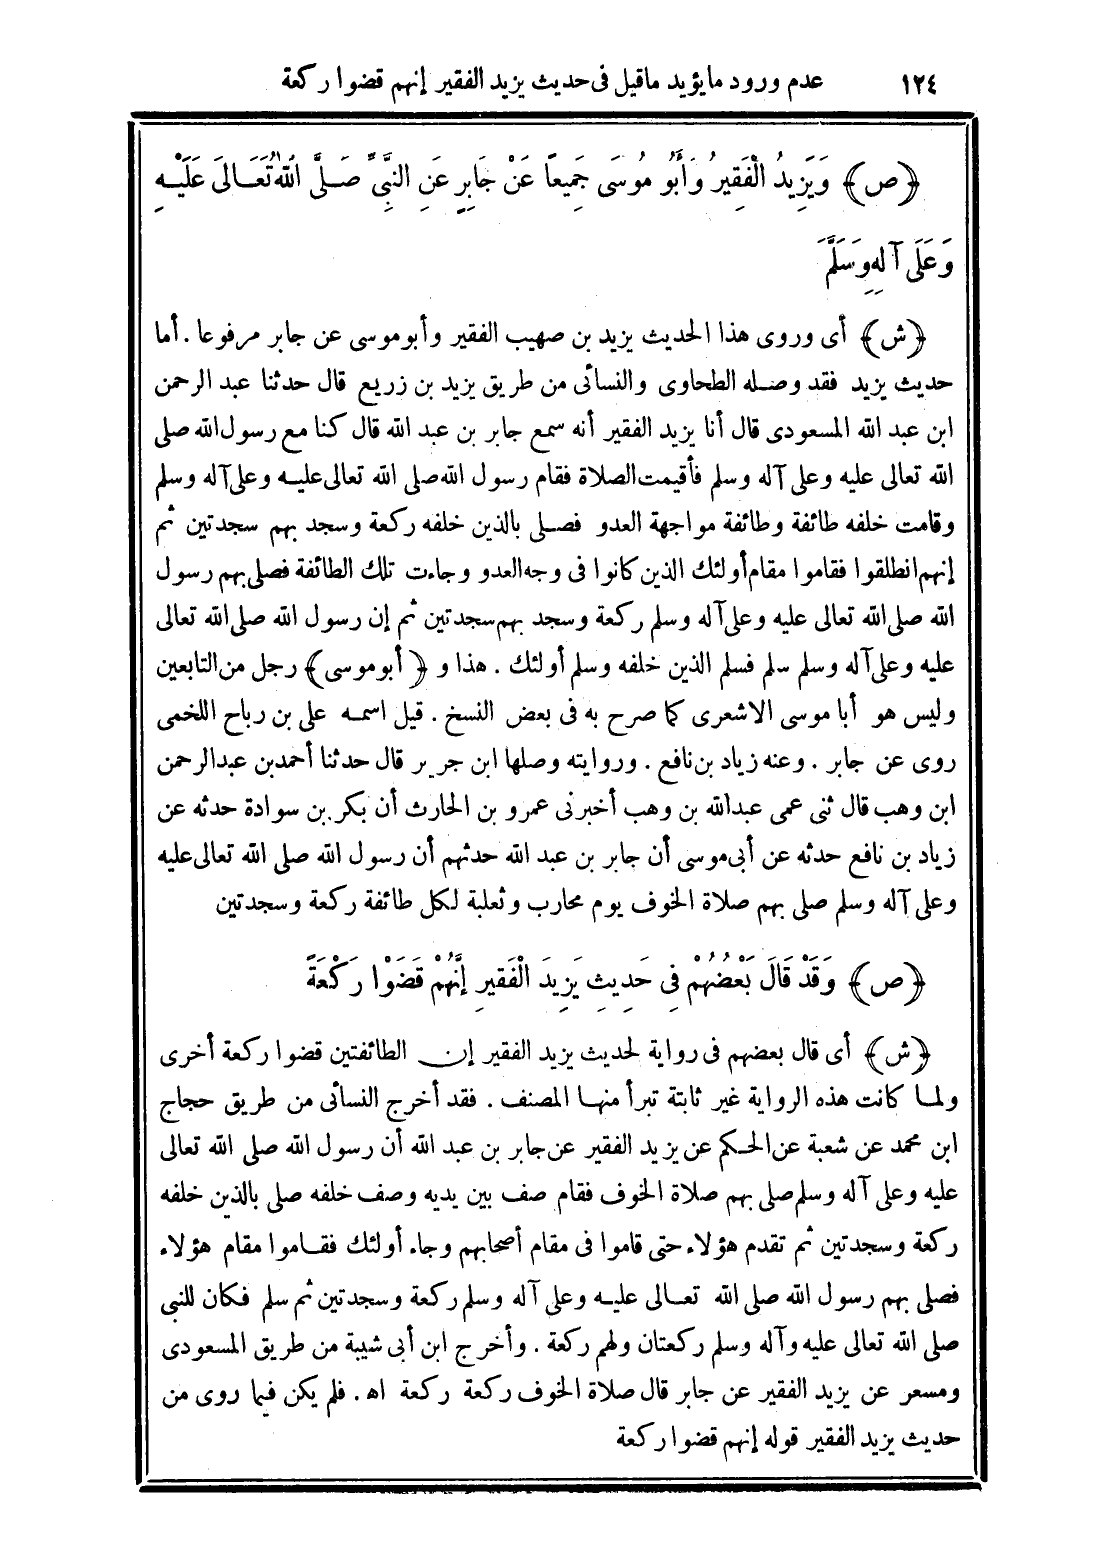 ١٢٤ عدم ورود مايؤيد ماقيل فى حديث يزيد الفقير إنهم قضوا ركعة
﴿ص﴾ وَيَزِيدُ الْفَقِيرُ وَأَبُو مُوسَى جَمِيعًا عَنْ جَابِرٍ عَنِ النَّبِيِّ صَلَّى اللهُ تَعَالَى عَلَيْهِ
وَعَلَى آلِهِ وَسَلَّمَ
﴿ش﴾ أى وروى هذا الحديث يزيد بن صهيب الفقير وأبو موسى عن جابر مرفوعا . أما
حديث يزيد فقد وصله الطحاوى والنسائى من طريق يزيد بن زريع قال حدثنا عبد الرحمن
ابن عبد الله المسعودى قال أنا يزيد الفقير أنه سمع جابر بن عبد الله قال كنا مع رسول الله صلى
الله تعالى عليه وعلى آله وسلم فأقيمت الصلاة فقام رسول الله صلى الله تعالى عليه وعلى آله وسلم
وقامت خلفه طائفة وطائفة مواجهة العدو فصلى بالذين خلفه ركعة وسجد بهم سجدتين ثم
إنهم انطلقوا فقاموا مقام أولئك الذين كانوا فى وجه العدو وجاءت تلك الطائفة فصلى بهم رسول
الله صلى الله تعالى عليه وعلى آله وسلم ركعة وسجد بهم سجدتين ثم إن رسول الله صلى الله تعالى
عليه وعلى آله وسلم سلم فسلم الذين خلفه وسلم أولئك . هذا و ﴿أبو موسى﴾ رجل من التابعين
وليس هو أبا موسى الاشعرى كما صرح به فى بعض النسخ . قيل اسمه على بن رباح اللخمى
روى عن جابر . وعنه زياد بن نافع . وروايته وصلها ابن جرير قال حدثنا أحمد بن عبد الرحمن
ابن وهب قال ثنى عمى عبد الله بن وهب أخبرنى عمرو بن الحارث أن بكر بن سوادة حدثه عن
زياد بن نافع حدثه عن أبى موسى أن جابر بن عبد الله حدثهم أن رسول الله صلى الله تعالى عليه
وعلى آله وسلم صلى بهم صلاة الخوف يوم محارب وثعلبة لكل طائفة ركعة وسجدتين
﴿ص﴾ وَقَدْ قَالَ بَعْضُهُمْ فِى حَدِيثِ يَزِيدَ الْفَقِيرِ إِنَّهُمْ قَضَوْا رَكْعَةً
﴿ش﴾ أى قال بعضهم فى رواية لحديث يزيد الفقير إن الطائفتين قضوا ركعة أخرى
ولما كانت هذه الرواية غير ثابتة تبرأ منها المصنف . فقد أخرج النسائى من طريق حجاج
ابن محمد عن شعبة عن الحكم عن يزيد الفقير عن جابر بن عبد الله أن رسول الله صلى الله تعالى
عليه وعلى آله وسلم صلى بهم صلاة الخوف فقام صف بين يديه وصف خلفه صلى بالذين خلفه
ركعة وسجدتين ثم تقدم هؤلاء حتى قاموا فى مقام أصحابهم وجاء أولئك فقاموا مقام هؤلاء
فصلى بهم رسول الله صلى الله تعالى عليه وعلى آله وسلم ركعة وسجدتين ثم سلم فكان للنبى
صلى الله تعالى عليه وآله وسلم ركعتان ولهم ركعة . وأخرج ابن أبى شيبة من طريق المسعودى
ومسعر عن يزيد الفقير عن جابر قال صلاة الخوف ركعة ركعة اه . فلم يكن فيما روى من
حديث يزيد الفقير قوله إنهم قضوا ركعة